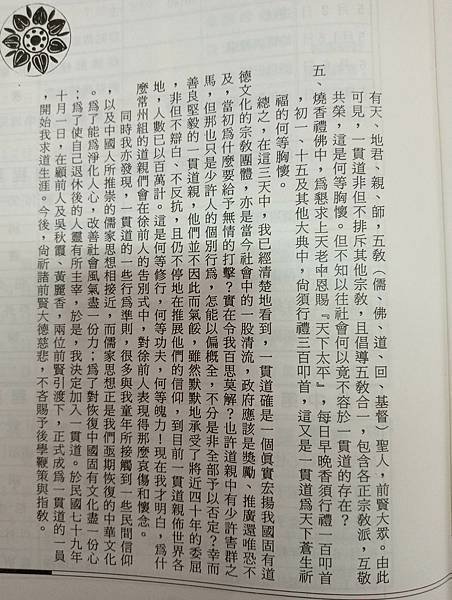 有天、地君、親、師，五敎（儒、佛、道、回、基督）聖人，前賢大眾。由此
可見，一貫道非但不排斥其他宗敎，且倡導五敎合一，包含各正宗敎派，互敬
共榮，這是何等胸懷。但不知以往社會何以竟不容於一貫道的存在？
五、燒香禮佛中，爲懇求上天老中恩賜『天下太平』，每日早晚香須行禮一百叩首
，初一、十五及其他大典中，尙須行禮三百叩首，這又是一貫道爲天下蒼生祈
福的何等胸懷。
總之，在這三天中，我已經清楚地看到，一貫道確是一個眞實宏揚我國固有道
德文化的宗敎團體，亦是當今社會中的一股清流，政府應該是獎勵、推廣還唯恐不
及，當初爲什麼要給予無情的打擊？實在令我百思莫解？也許道親中有少許害群之
馬，但那也只是少許人的個別行爲，怎能以偏概全，不分是非全部予以否定？幸而
善良堅毅的一貫道親，他們並不因此而氣餒，雖然默默地承受了將近四十年的委屈
，非但不辯白、不反抗，且仍不停地在推展他們的信仰，到目前一貫道親佈世界各
地，人數已以百萬計。這是何等修行，何等功夫，何等魄力！現在我才明白，爲什
麼常州組的道親們會在徐前人的告別式中，對徐前人表現得那麼哀傷和懷念。
同時我亦發現，一貫道的一些行爲準則，很多與我童年所接觸到一些民間信仰
，以及中國人所推崇的儒家思想相接近，而儒家思想正是我們亟期恢復的中華文化
。爲了能爲淨化人心，改善社會風氣盡一份力；爲了對恢復中國固有文化盡一份心
；爲了使自己退休後的人靈有所主宰，於是，我決定加入一貫道。於民國七十九年
十月一日，在顧前人及吳秋霞、黃麗香，兩位前賢引渡下，正式成爲一貫道的一員
，開始我求道生涯。今後，尙祈諸前賢大德慈悲，不吝賜予後學鞭策與指敎。